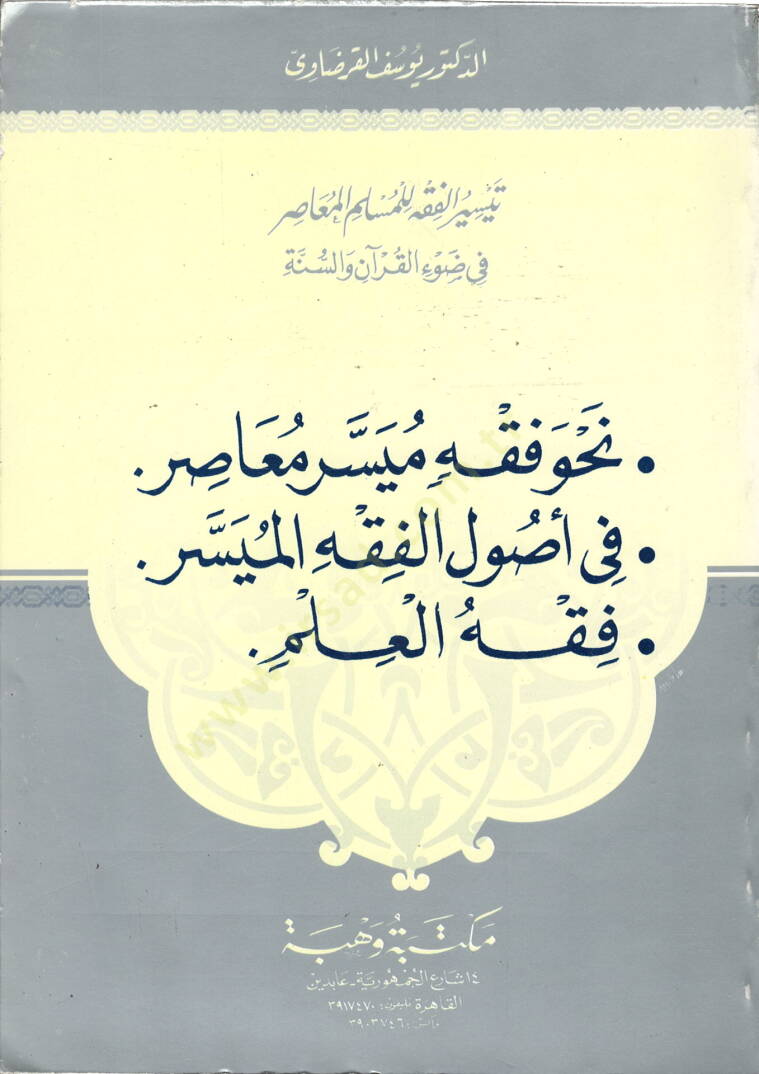 الدكتور يوسف القرضاوى
تَيْسِيرُ الفِقْهِ لِلْمُسْلِمِ المُعَاصِر
فِي ضَوْءِ القُرْآنِ وَالسُّنَّةِ
• نَحْوَ فِقْهٍ مُيَسَّرٍ مُعَاصِر.
• فِى أُصُول الفِقْهِ المُيَسَّر.
• فِقْهُ العِلْمِ.
مكتبة وهبة
١٤ شارع الجمهورية - عابدين
القاهرة تليفون: ٣٩١٧٤٧٠
فاكس: ٣٩٠٣٧٤٦